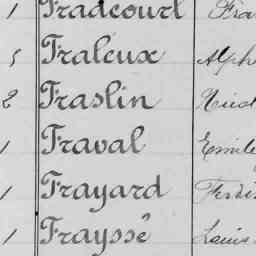 1 Fradcourt Fra
5 Fraleux Alph
2 Fraslin
1 Fraval Emile
1 Frayard Ferdi
1 Fraysse Louis